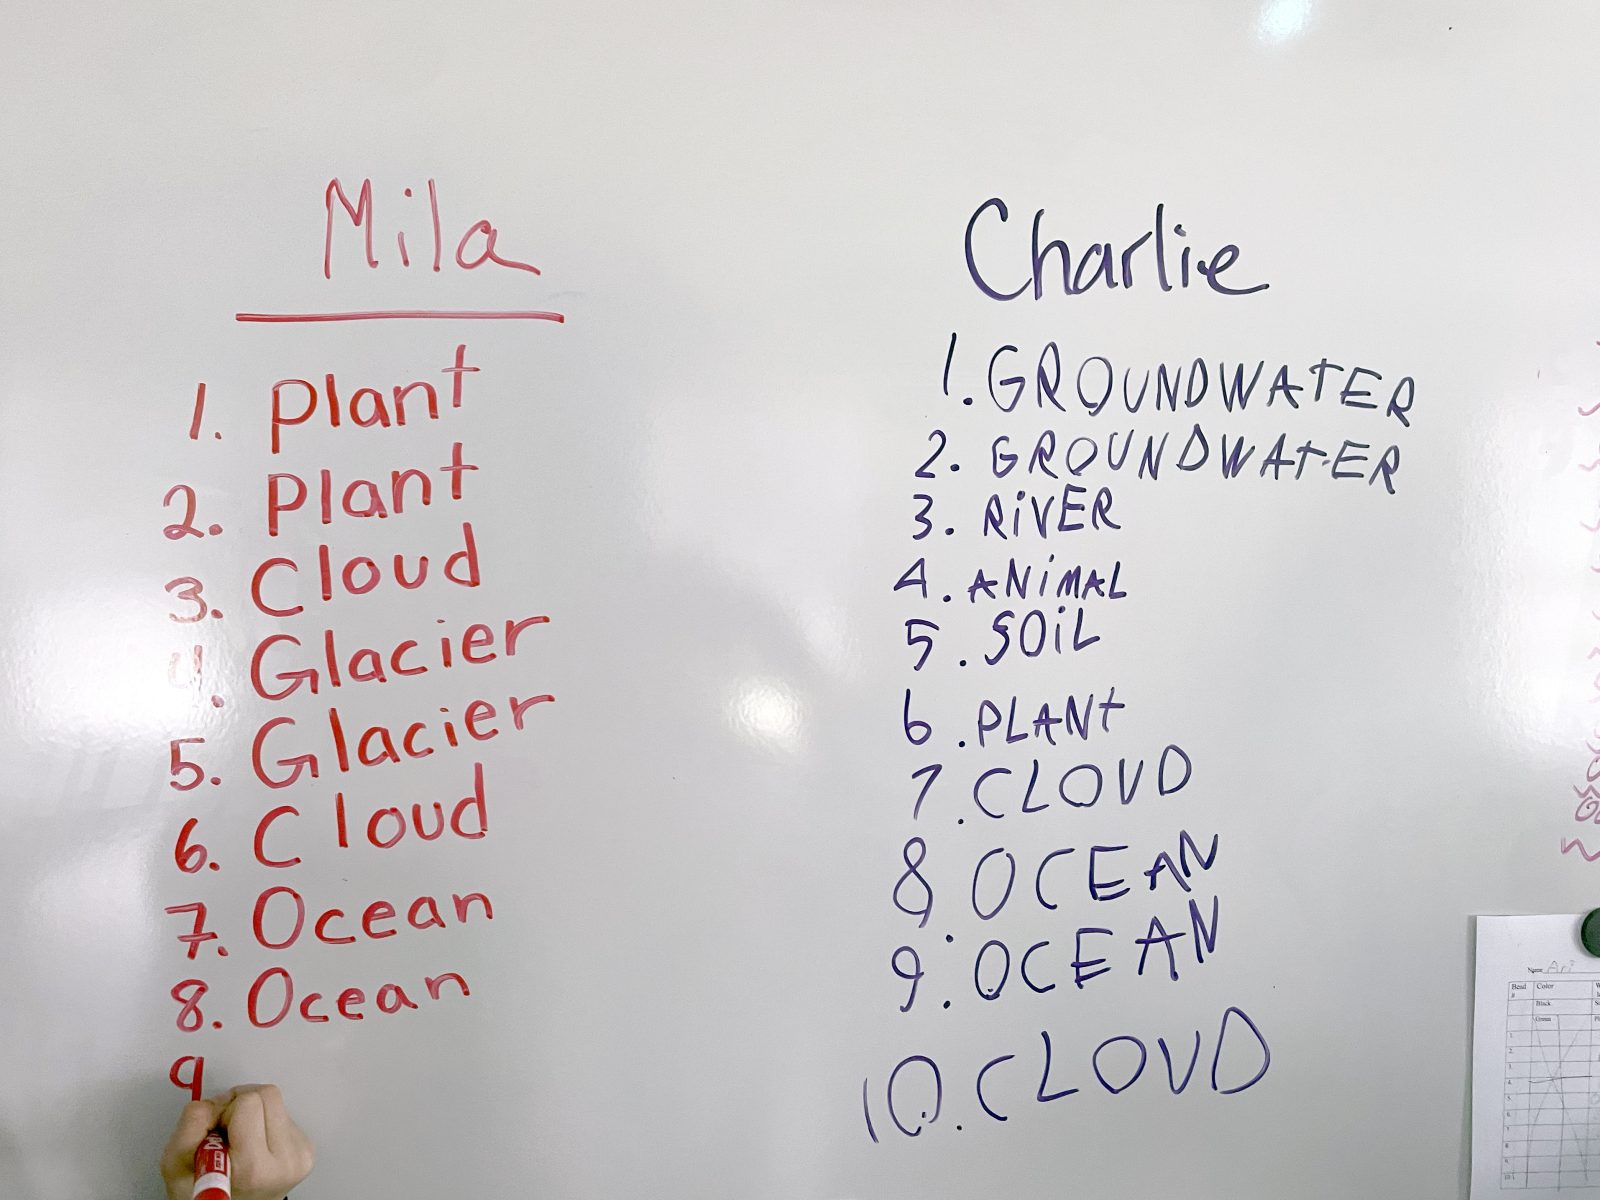 Mila
1. Plant
2. Plant
3. Cloud
4. Glacier
5. Glacier
6. Cloud
7. Ocean
8. Ocean
9
Charlie
1. GROUNDWATER
2. GROUNDWATER
3. RiVER
4. ANiMAL
5. SOiL
6. PLANT
7. CLOUD
8. OCEAN
9. OCEAN
10. CLOUD
Name Ari
Bead # Color
Black
Green